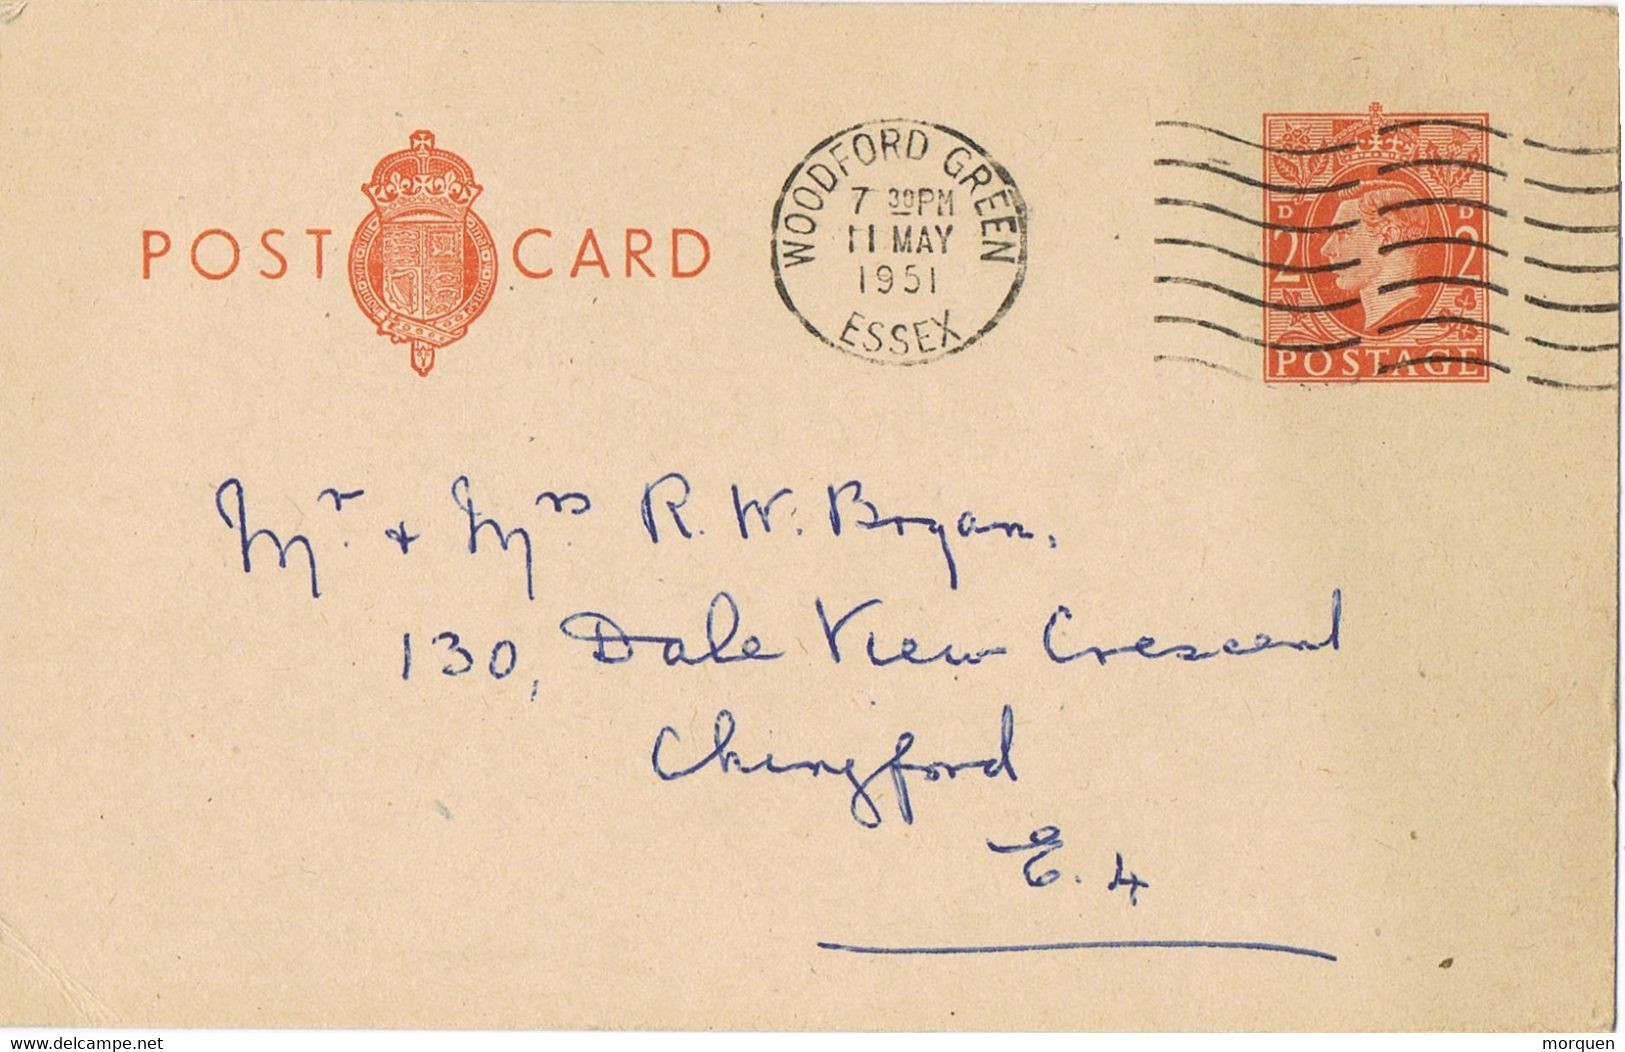 POST CARD
WOODFORD GREEN
7 30PM
11 MAY
1951
ESSEX
D D
2 2
POSTAGE
Mr. & Mrs R. W. Bryan.
130, Dale View Crescent
Chingford
E. 4
www.delcampe.net
morquen